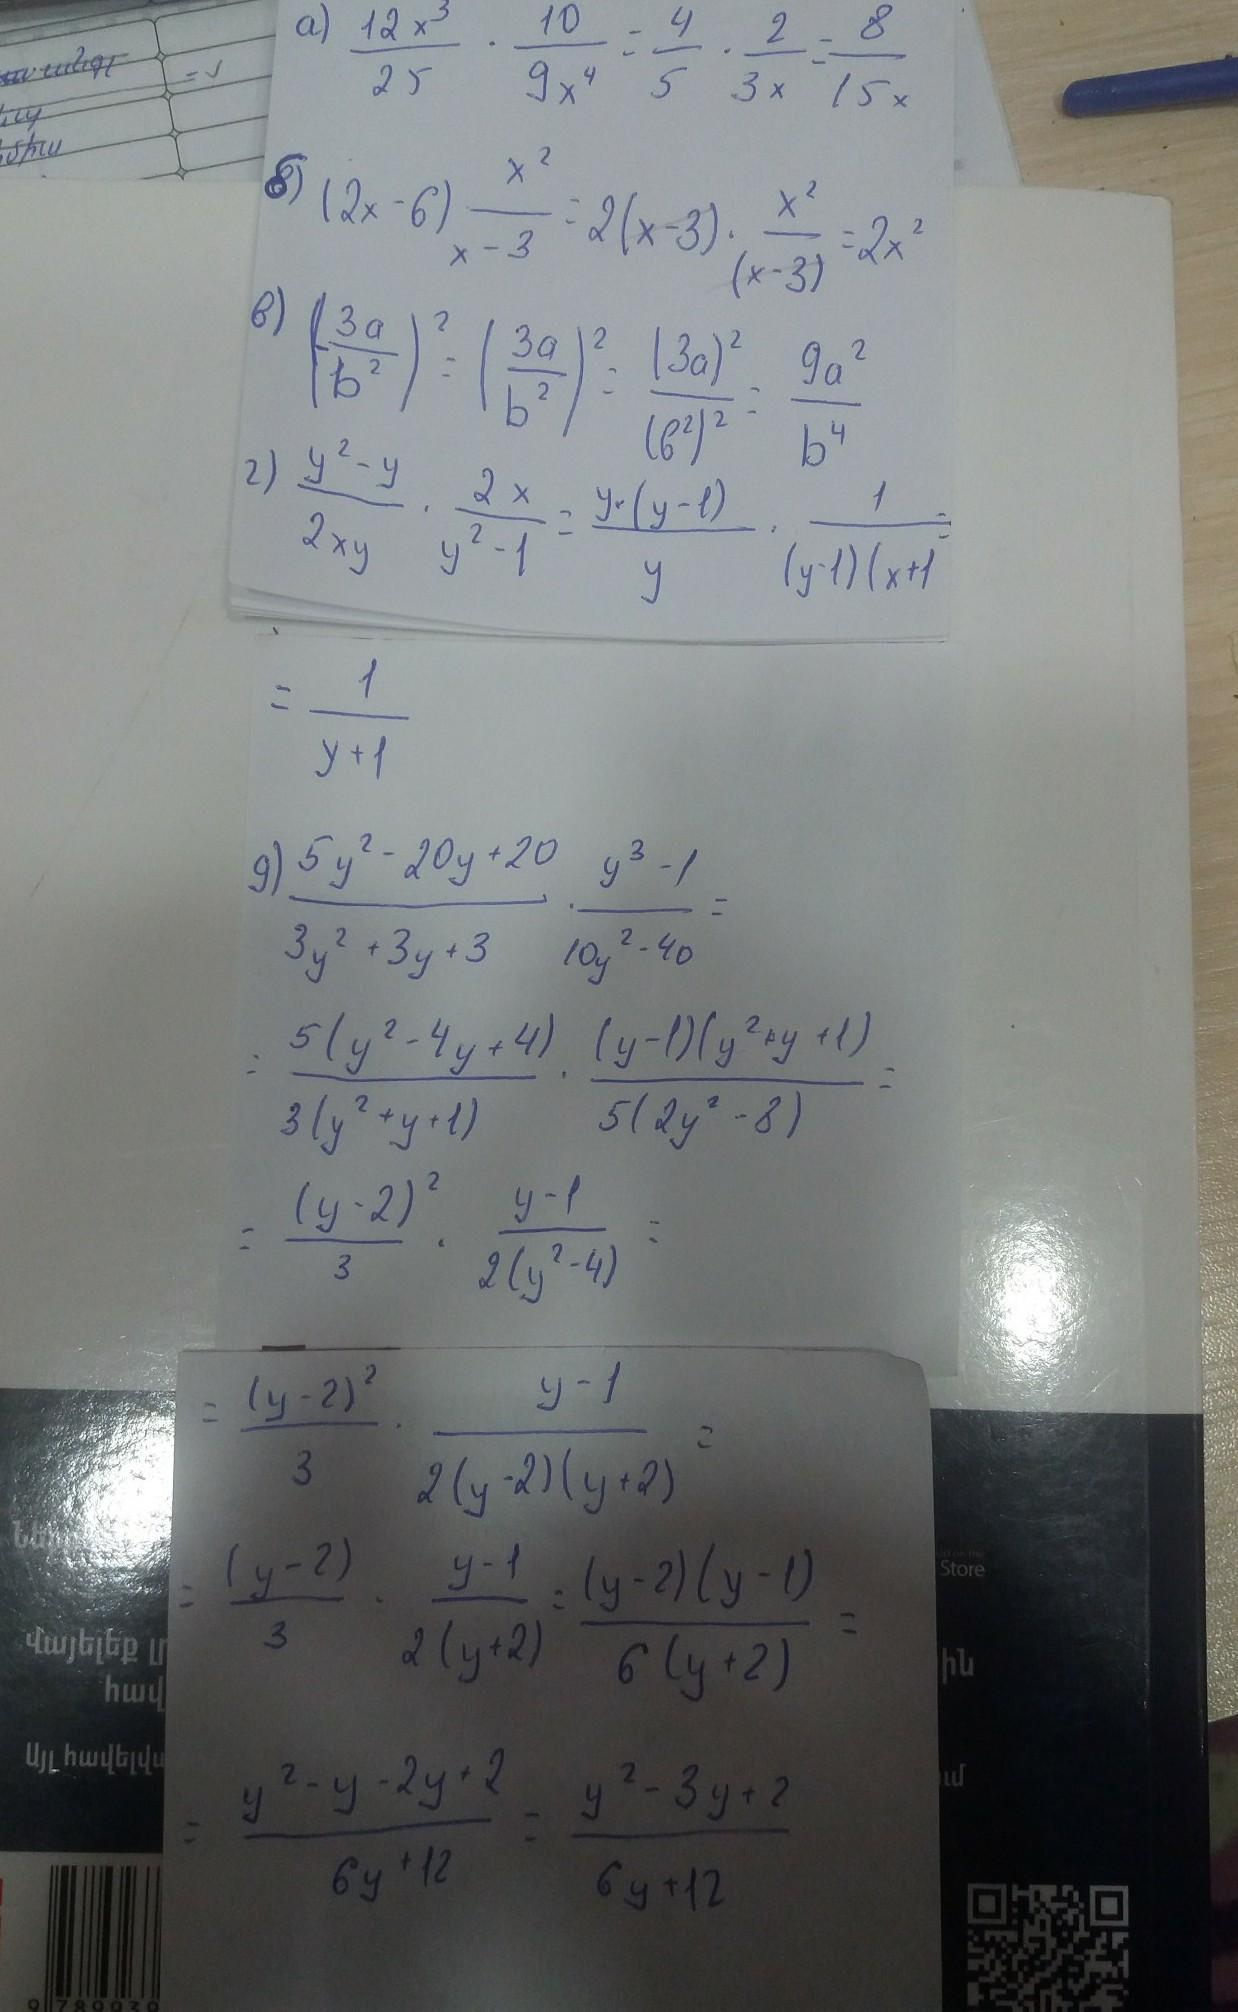 а) 12x³/25 · 10/9x⁴ = 4/5 · 2/3x = 8/15x
б) (2x-6) x²/x-3 = 2(x-3) · x²/(x-3) = 2x²
в) (3a/b²)² = (3a/b²)² = (3a)²/(б²)² = 9a²/b⁴
г) y²-y/2xy · 2x/y²-1 = y·(y-1)/y · 1/(y-1)(x+1 =
= 1/y+1
g) 5y²-20y+20/3y²+3y+3 · y³-1/10y²-40 =
= 5(y²-4y+4)/3(y²+y+1) · (y-1)(y²+y+1)/5(2y²-8) =
= (y-2)²/3 · y-1/2(y²-4) =
= (y-2)²/3 · y-1/2(y-2)(y+2) =
= (y-2)/3 · y-1/2(y+2) = (y-2)(y-1)/6(y+2) =
= y²-y-2y+2/6y+12 = y²-3y+2/6y+12
Store
վայելեք
հավ
ին
Այլ հավելվա
ում
9 789939